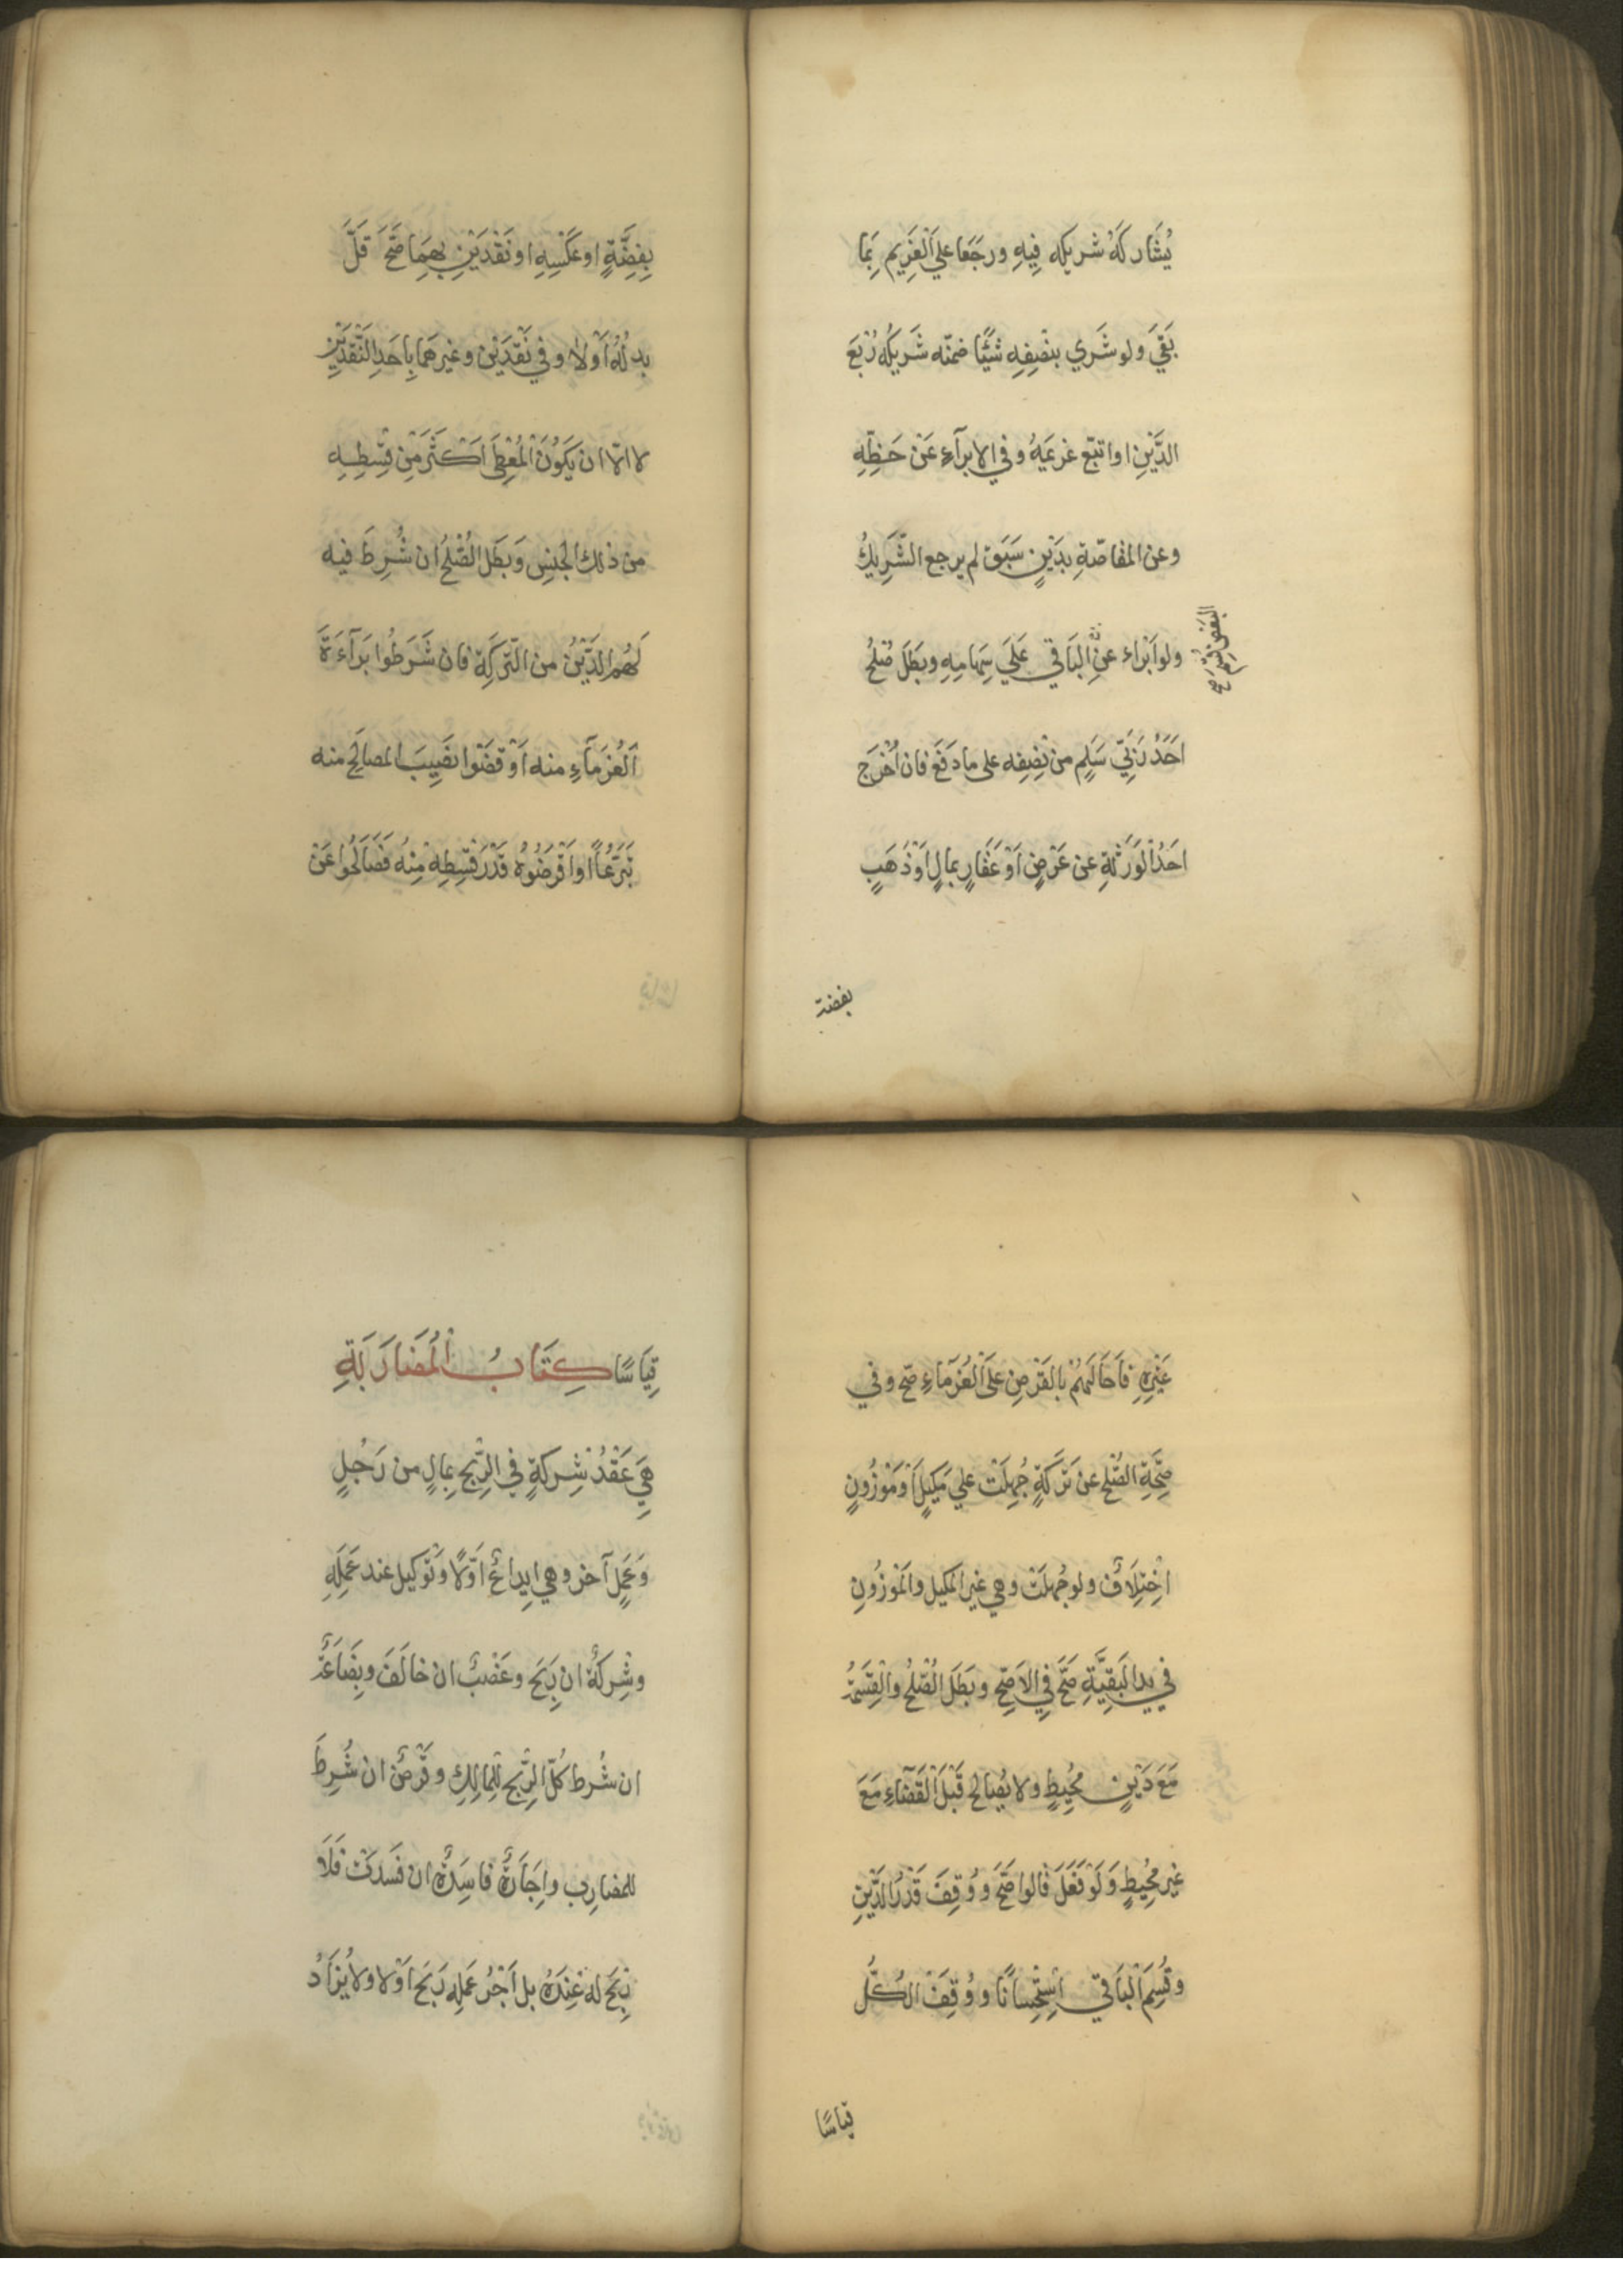 يُشَارِكَهُ شريكه فِيهِ ورجَعَا علي اَلْغَرِيم بِمَا
بَقَيَ ولو شَرَي بنْصِفِهِ شَيْئًا ضمّنه شَرِيكُه رُبْعَ
الدَّيْنِ او اتبّع غريمَهُ وفي الابرآءِ عَنْ حَظِّهِ
وعن المقاصّةِ بدَيْنٍ سَبَق لم يرجع الشَّرِيكُ
ولو اَبْراء عنِ
البَعْضِ قُسِّمَ صح
الْبَاقي عَلَي سِهَامِهِ وبَطَلَ صُلْحُ
احَدُ رَبَّيْ سَلِم من نِصِفِه على ما دَفَعَ فان اَخْرَج
احَدُ اْلوَرَثَةِ عن عَرْضٍ اَوْ عَقَارٍ بمالٍ اَوْ ذَهَبٍ
بفضة
بِفِضَّةٍ او عَكْسِهِ او نَقْدَيْنِ بهِمَا صَحَّ قَلَّ
بدلُهُ اَوْلا وفي نَقْدَيْن وغيرهمَا بِاَحَدِ النَّقْدَيْنِ
لا الاّ ان يَكُونَ اْلمُعْطَى اَكْثَرَ مِنْ قِسْطِهِ
من ذلك الجنسِ وَبَطَل الصُّلْحُ ان شُرِطَ فيه
لَهُم الدَّيْنُ من التّرِكَةِ فان شَرَطُوا بَرَآءَةَ
اَلْغُرَمَآءِ منه اَوْ قضَوْا نصِيبَ المصالح منه
تَبَرُّعًا اَوْ اَقْرَضُوهُ قَدْرَ قِسْطِهِ مِنْهُ فصَالَحُوا عَنْ
غَيْرِهِ فاَحَالَهُمْ بالقَرْضِ عَلَى الْغُرَمَاءِ صَحّ وفي
صِحَّةِ الصُّلْحِ عن تَرِكَةٍ جُهِلَتْ علي مَكِيلٍ اَوْ مَوْزُونٍ
اخْتِلَافٌ ولو جُهِلَتْ وهي غير المكيل والمَوْزُونِ
في يد الْبَقِيَّةِ صَحَّ فِي الاَصَحِّ وبَطَلَ الصُّلْحُ والْقِسْمَةُ
مَعَ دَيْنٍ مُحِيطٍ ولا يُصَالح قَبْلَ الْقَضَآءِ مَعَ
غير مُحِيطٍ وَلَوْ فَعَلَ قالوا صَحَّ وَوُقِفَ قَدْرُ الدَّيْنِ
وقُسِمَ الْبَاقي اسْتِحْسَانًا ووُقِفَ الكُلُّ
قياسًا
قِيَاسًا كِتَابُ الْمُضَارَبَةِ
هِيَ عَقْدُ شِرِكَةٍ في الرِّبْح بِمالٍ من رَجُلٍ
وَعَمَلٍ آخر وهي ايداعٌ اَوَّلًا وَتَوكيل عند عَمَلِهِ
وشِرْكَةٌ ان رَبِحَ وغَصْبٌ ان خالَفَ وبِضَاعَةٌ
ان شُرِط كُلّ الرِّبْحِ لِلْمالِكِ وقَرْضٌ ان شُرِطَ
للمضارِب واِجَارَةٌ فاسِدةٌ ان فَسدَتْ فَلَا
رِبْحَ له عِنْدَهُ بل اَجْرُ عَمَلِهِ رَبِحَ اَوْلا ولا يُزَادُ